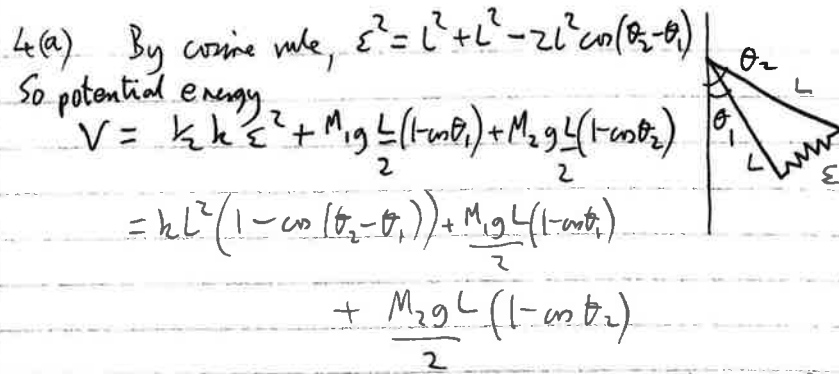 4(a) By cosine rule, ε² = L² + L² − 2L² cos(θ₂−θ₁)
So potential energy
V = ½ k ε² + M₁g L/2 (1−cosθ₁) + M₂g L/2 (1−cosθ₂)
= kL² (1 − cos (θ₂−θ₁)) + M₁gL/2 (1−cosθ₁)
+ M₂gL/2 (1−cosθ₂)
θ₂
L
θ₁
L
ε